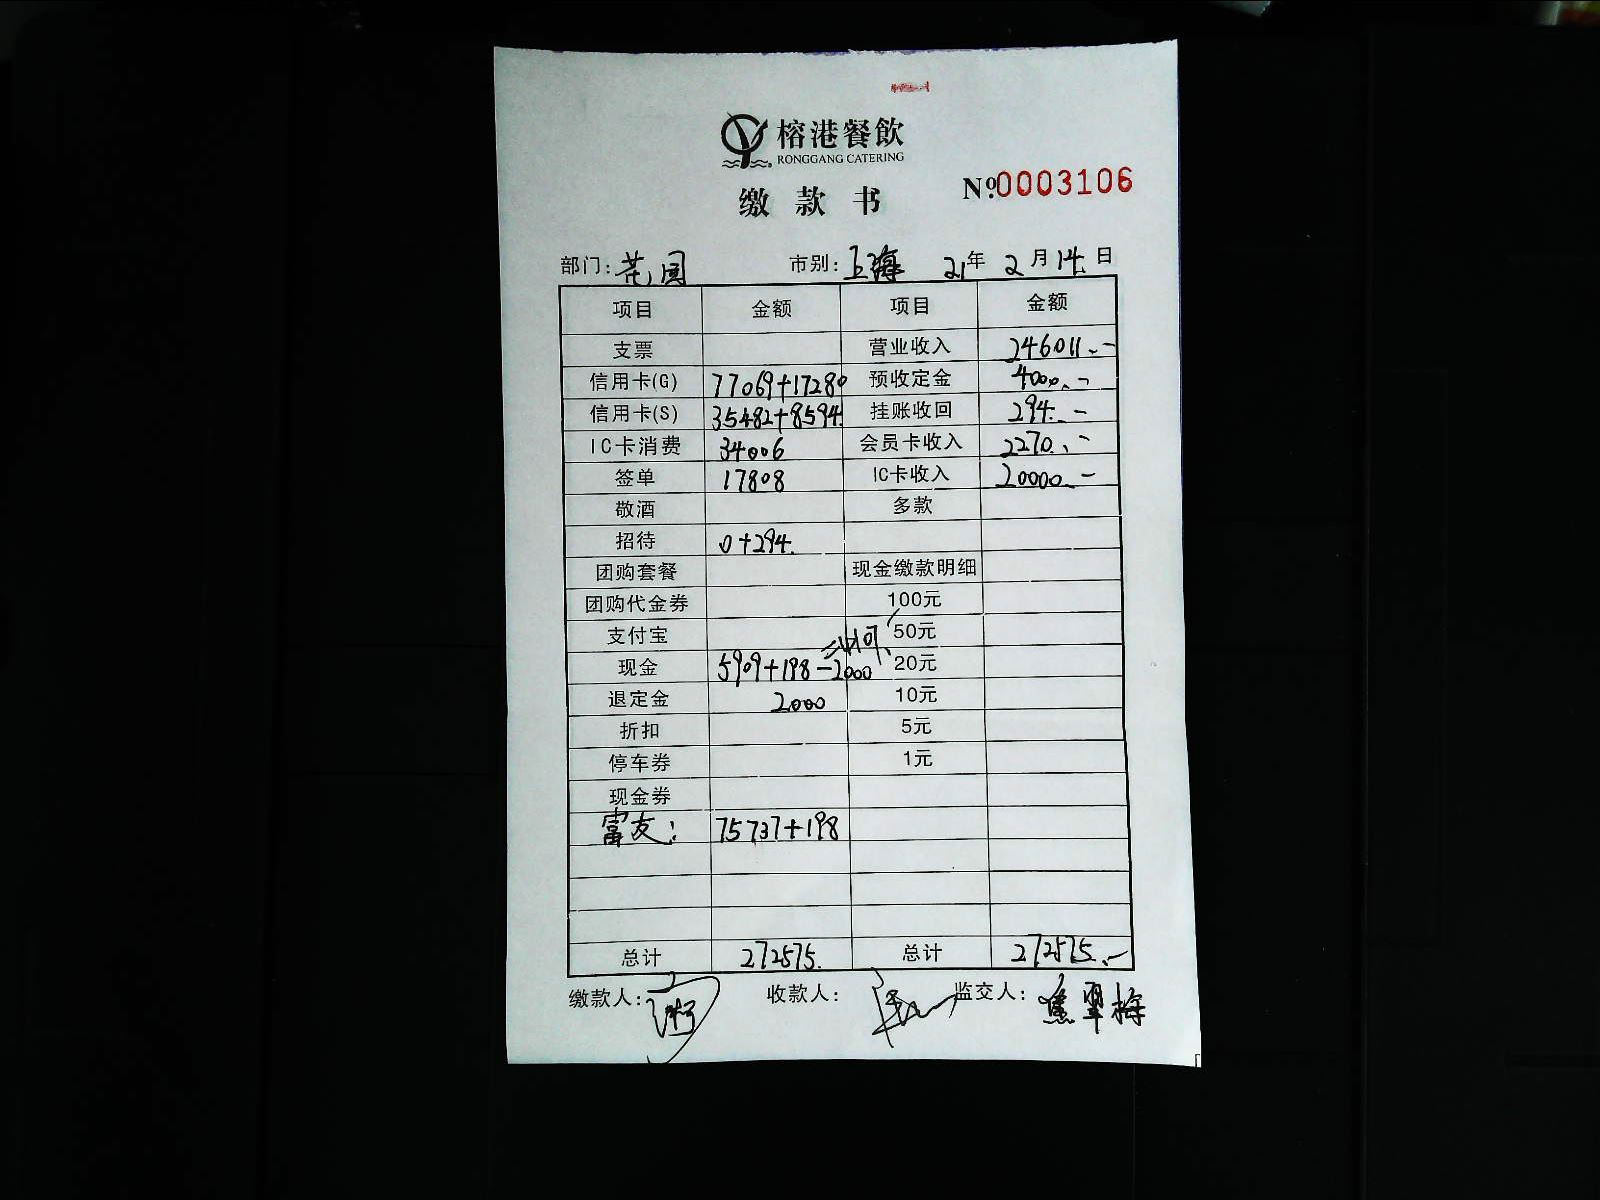 榕港餐飲
RONGGANG CATERING
缴款书 №0003106
部门: 花园 市别: 上海 21年 2月14日
项目 金额 项目 金额
支票 营业收入 246011.-
信用卡(G) 77069+17280 预收定金 4000.-
信用卡(S) 35482+8594 挂账收回 294.-
IC卡消费 34006 会员卡收入 2270.-
签单 17808 IC卡收入 20000.-
敬酒 多款
招待 0+294.
团购套餐 现金缴款明细
团购代金券 100元
支付宝 50元
现金 5909+198-2000 20元
退定金 2000 10元
折扣 5元
停车券 1元
现金券
富友: 75737+198
总计 272575. 总计 272575.-
缴款人: 收款人: 监交人: 焦翠梅